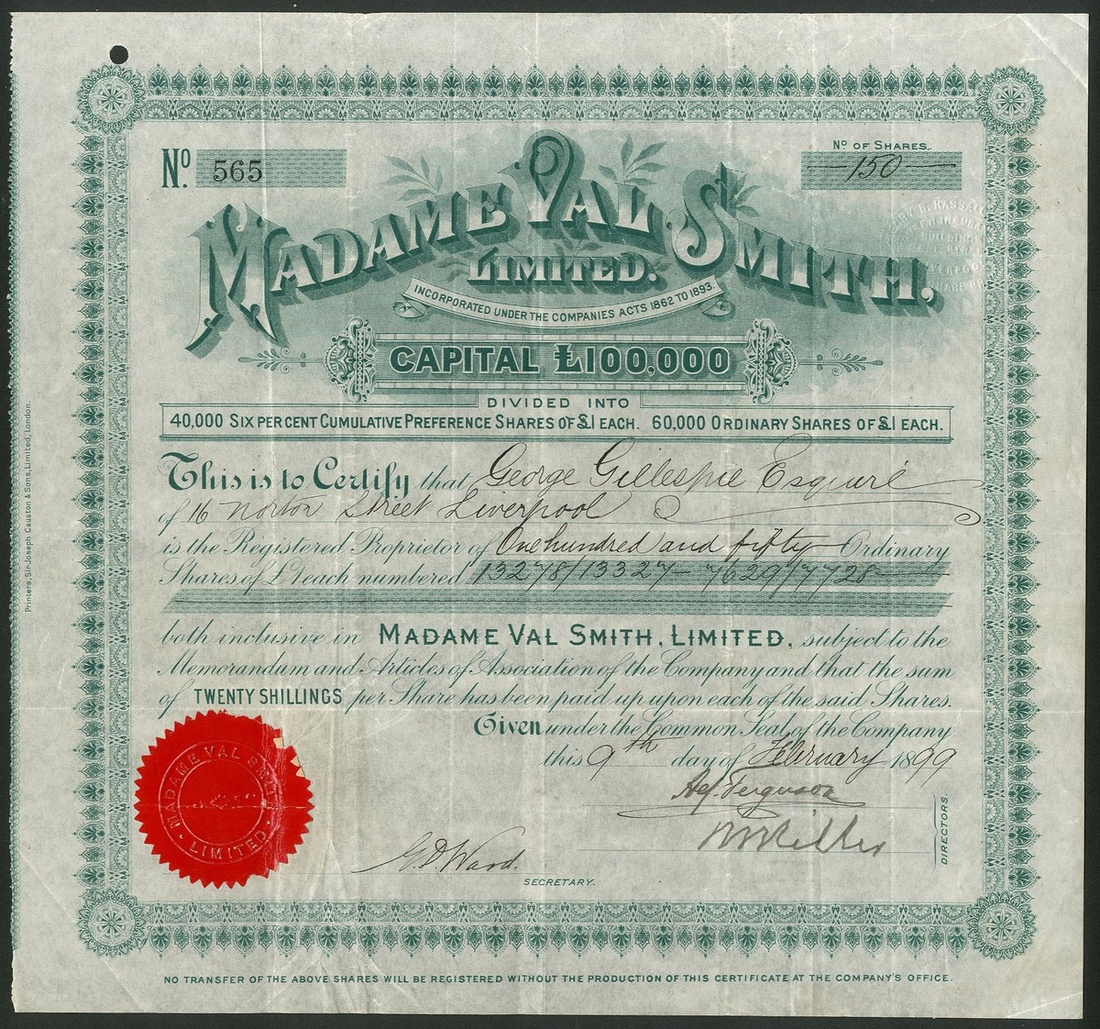 No. 565
No OF SHARES.
150
MADAME VAL SMITH.
LIMITED.
INCORPORATED UNDER THE COMPANIES ACTS 1862 TO 1893.
CAPITAL £100,000
DIVIDED INTO
40,000 SIX PER CENT CUMULATIVE PREFERENCE SHARES OF £1 EACH. 60,000 ORDINARY SHARES OF £1 EACH.
This is to Certify that George Gillespie Esquire
of 16 Norton Street Liverpool
is the Registered Proprietor of One hundred and fifty Ordinary
Shares of £1 each numbered 13278/13327 - 7629/7728
both inclusive in MADAME VAL SMITH, LIMITED, subject to the
Memorandum and Articles of Association of the Company and that the sum
of TWENTY SHILLINGS per Share has been paid up upon each of the said Shares.
Given under the Common Seal of the Company
this 9th day of February 1899
Ferguson
DIRECTORS.
G.D. Ward.
SECRETARY.
MADAME VAL SMITH
LIMITED
NO TRANSFER OF THE ABOVE SHARES WILL BE REGISTERED WITHOUT THE PRODUCTION OF THIS CERTIFICATE AT THE COMPANY'S OFFICE.
Printers, Sir Joseph Causton & Sons, Limited, London.